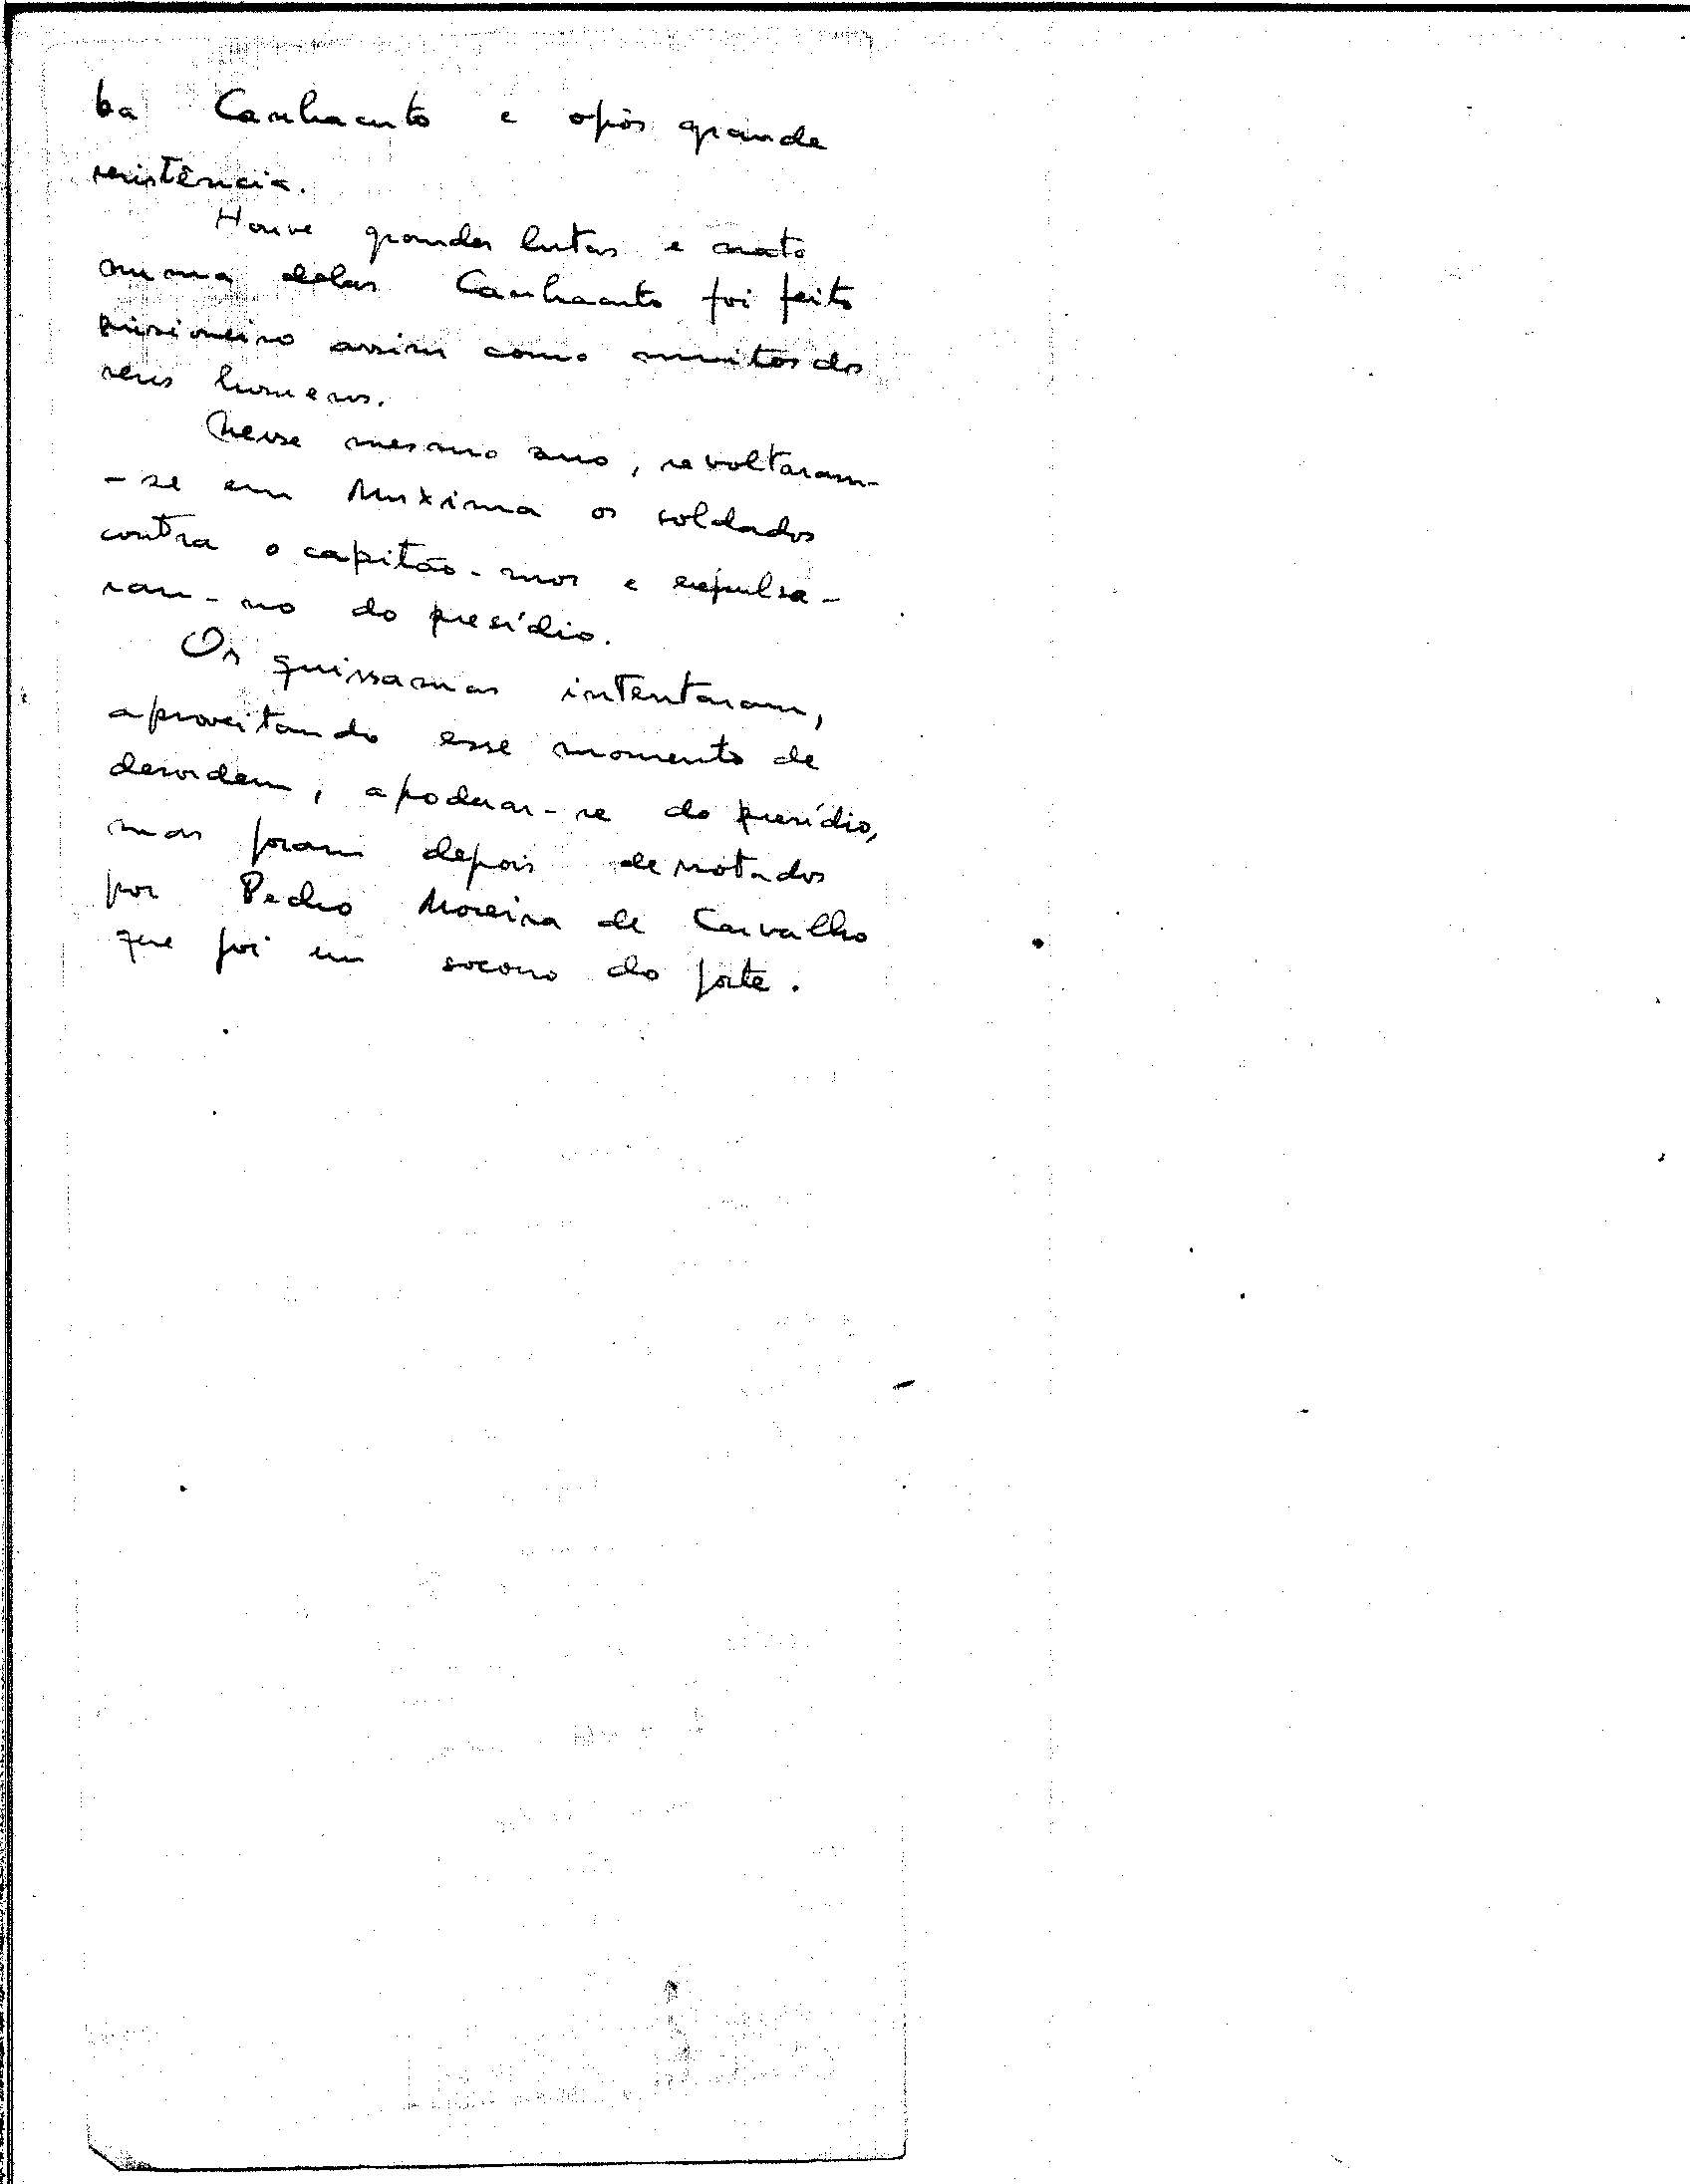 ba Canhacuto e após grande
resistência.
Houve grandes lutas e
numa delas Canhacuto foi feito
prisioneiro assim como muitos dos
seus homens.
Nesse mesmo ano, revoltaram-
-se em Muxima os soldados
contra o capitão-mor e expulsa-
ram-no do presídio.
Os quissamas intentaram,
aproveitando esse momento de
desordem, apoderar-se do presídio,
mas foram depois derrotados
por Pedro Moreira de Carvalho
que foi em socorro do forte.